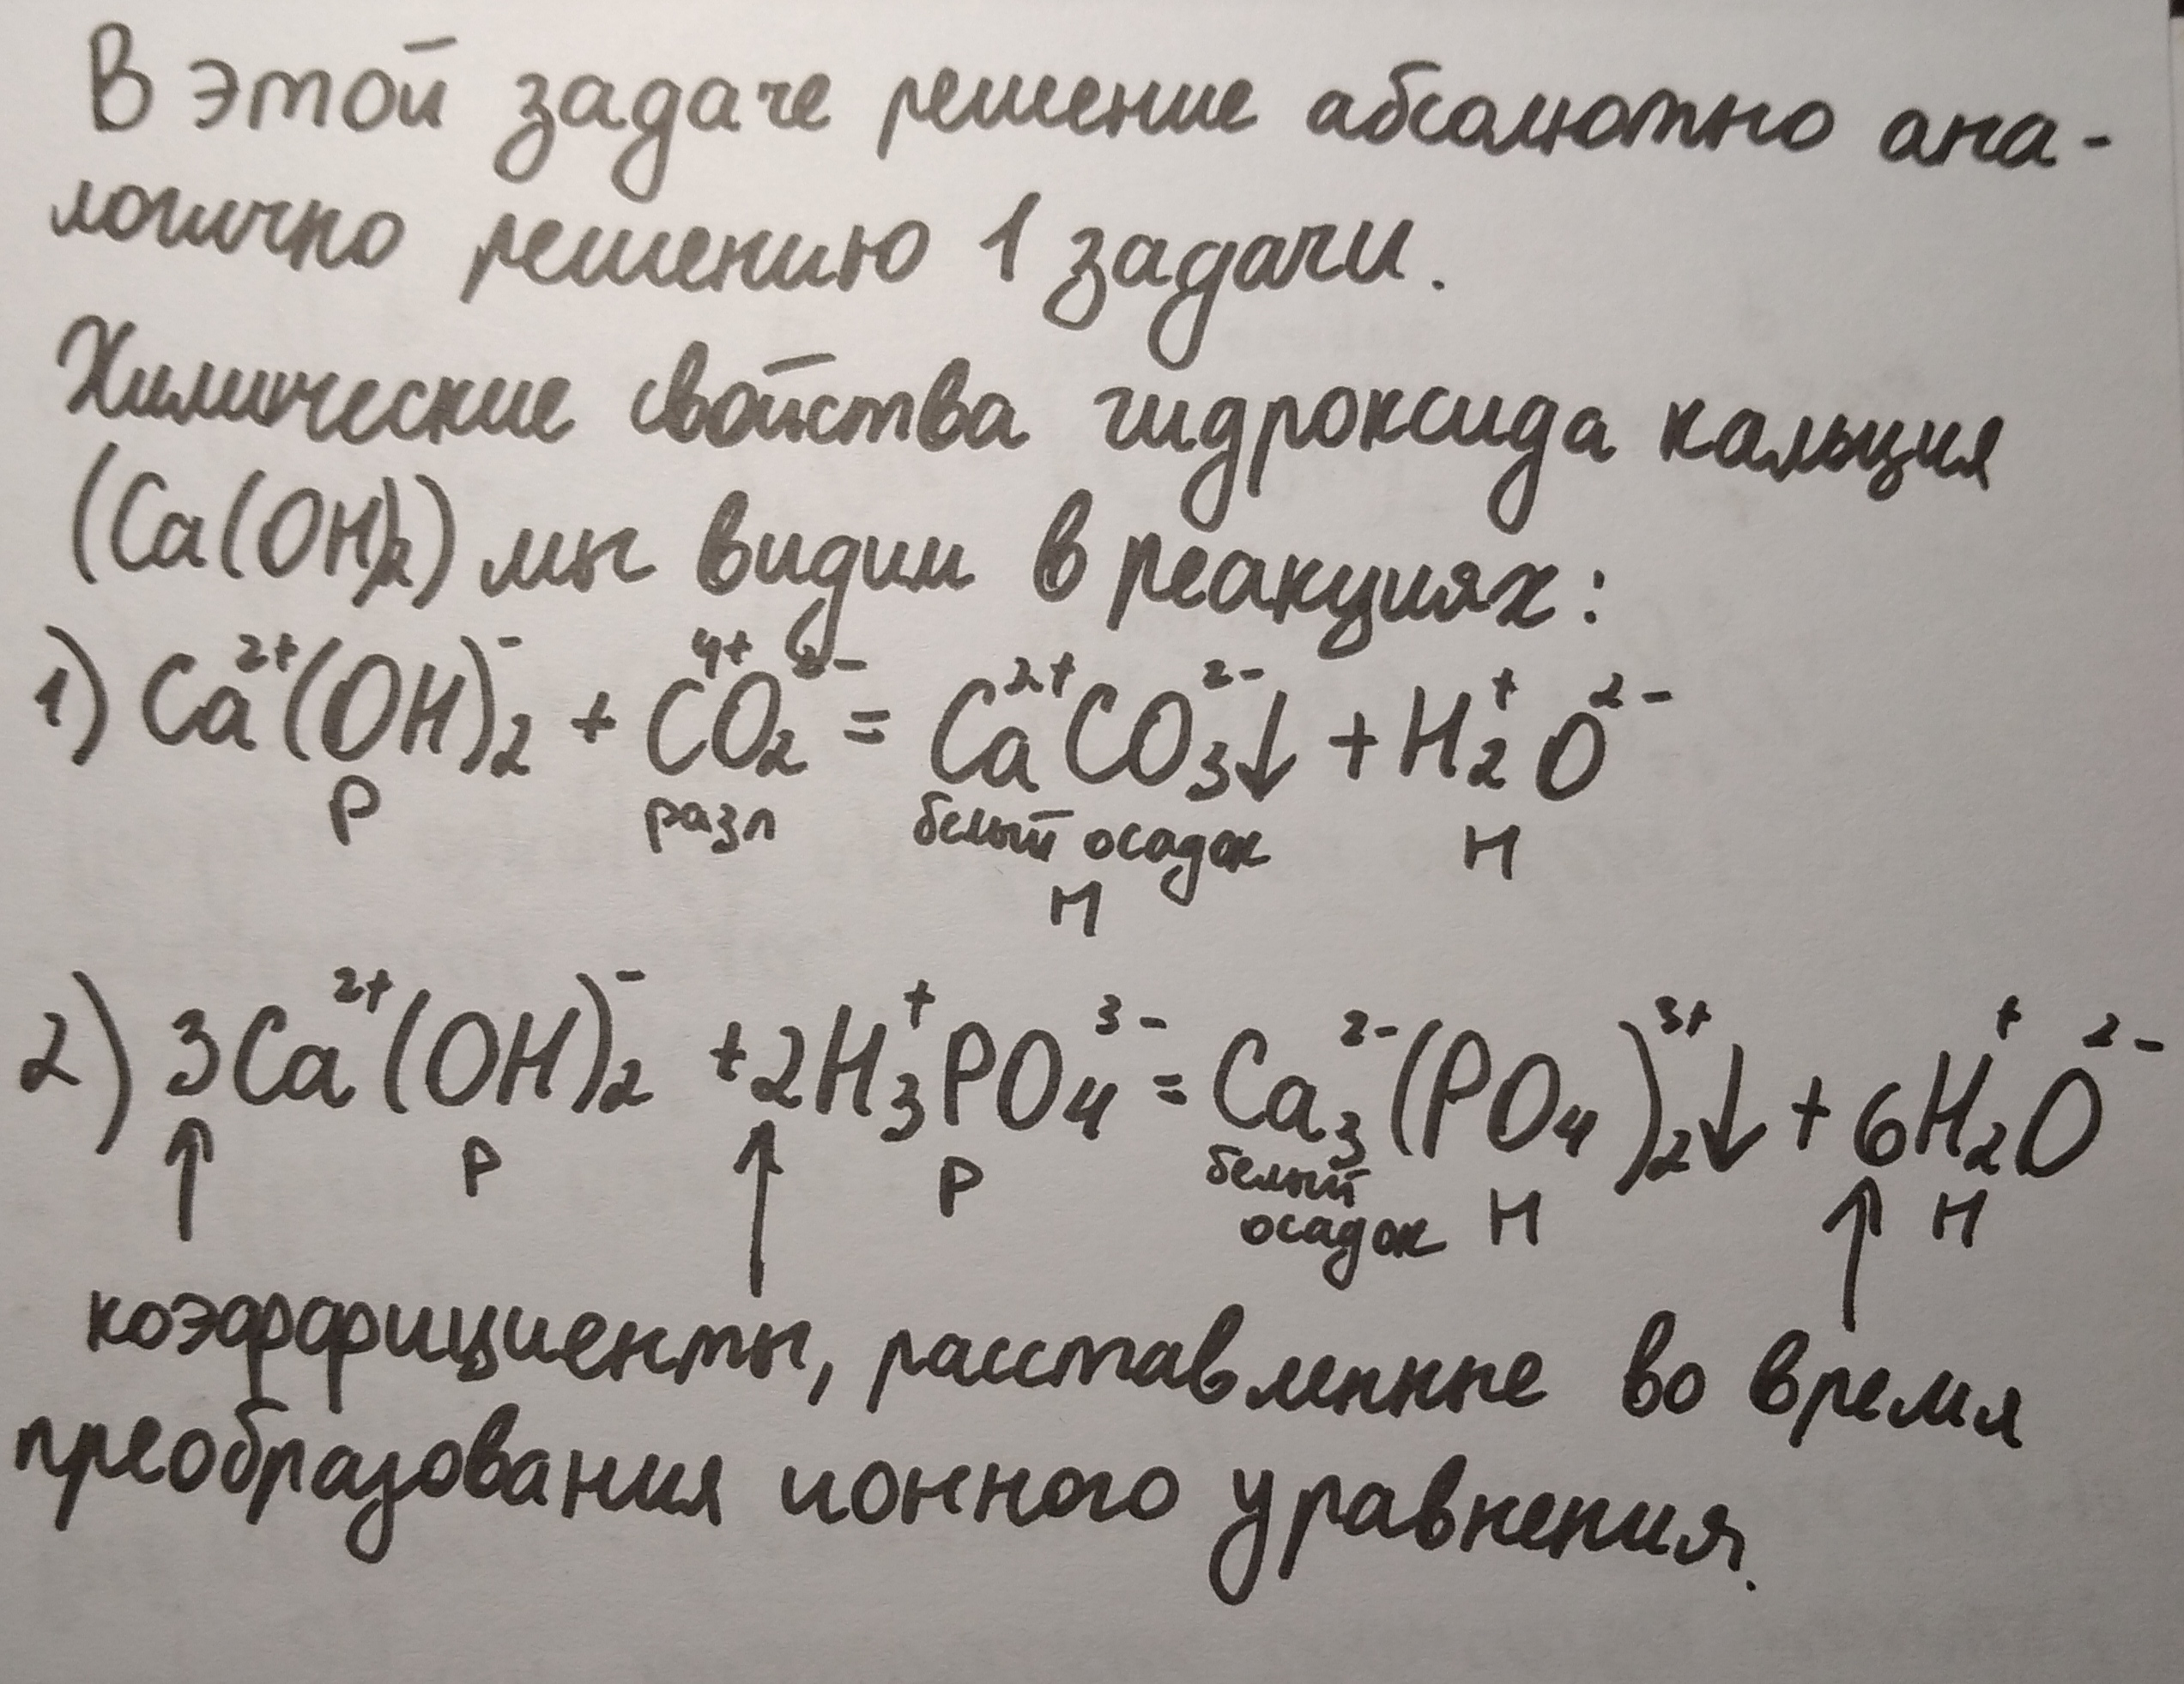 В этой задаче решение абсолютно ана-
логично решению 1 задачи.
Химические свойства гидроксида кальция
(Ca(OH)₂) мы видим в реакциях:
1) Ca²⁺(OH)₂⁻ + C⁴⁺O₂²⁻ = Ca²⁺CO₃²⁻↓ + H₂⁺O²⁻
Р разл белый осадок Н
Н
2) 3Ca²⁺(OH)₂⁻ + 2H₃⁺PO₄³⁻ = Ca₃²⁻(PO₄)₂³⁺↓ + 6H₂⁺O²⁻
↑ Р ↑ Р белый осадок Н ↑ Н
коэффициенты, расставленные во время
преобразования ионного уравнения.